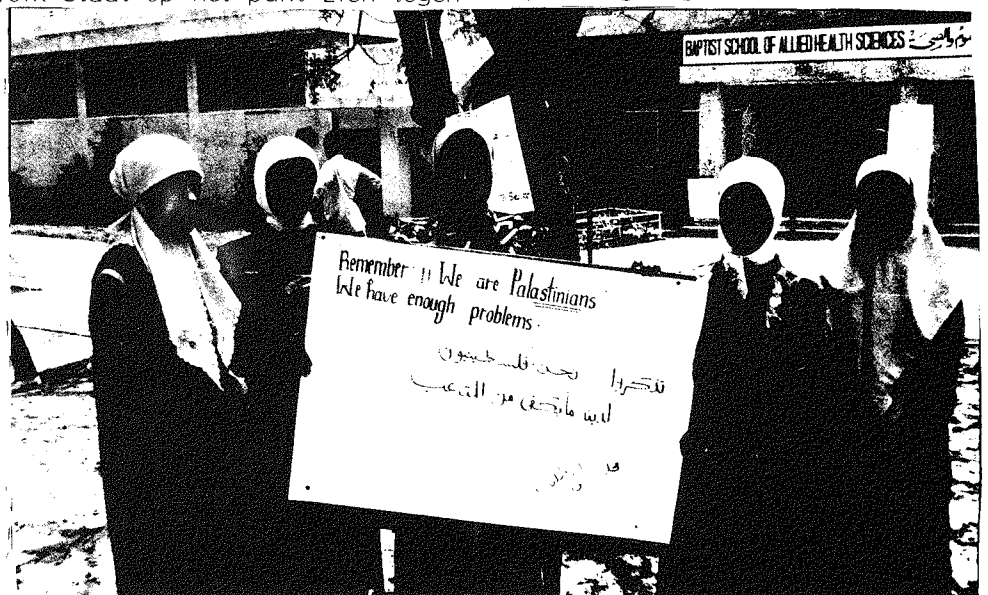 staat op het punt zich tegen
BAPTIST SCHOOL OF ALLIED HEALTH SCIENCES
Remember !! We are Palastinians
We have enough problems.
تذكروا نحن فلسطينيون
لدينا ما يكفي من المتاعب